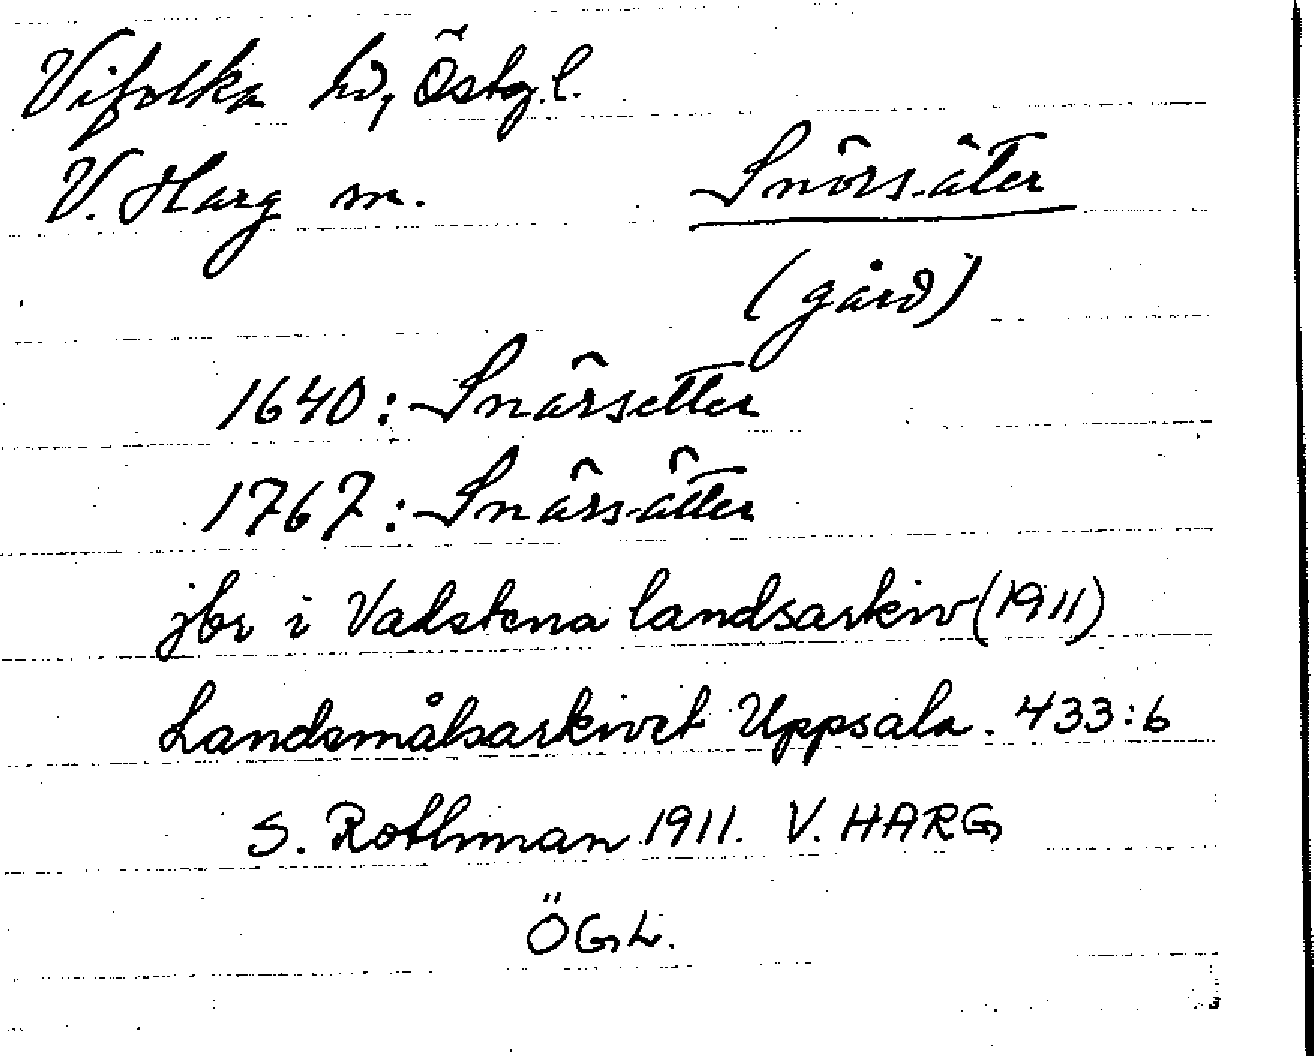 Vifolka hd, Östg.l.
V. Harg sn. Snörsäter
(gård)
1640: Snärsetter
1767: Snärsätter
jbr i Vadstena landsarkiv (1911)
Landsmålsarkivet Uppsala. 433:6
S. Rothman 1911. V. HARG
ÖGL.